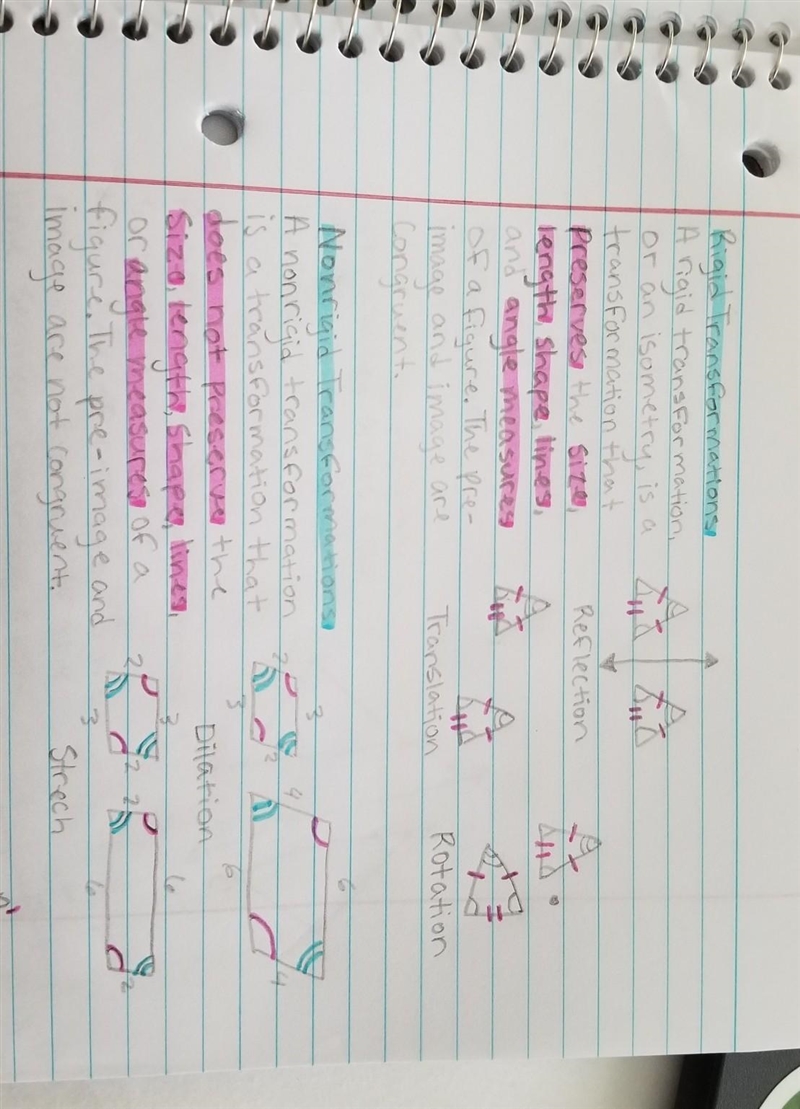 Rigid Transformations
A rigid transformation,
or an isometry, is a
transformation that
preserves the size,
length, shape, lines,
and angle measures
of a figure. The pre-
image and image are
congruent.
Reflection
Translation
Rotation
Nonrigid Transformations
A nonrigid transformation
is a transformation that
does not preserve the
size, length, shape, lines,
or angle measures of a
figure. The pre-image and
image are not congruent.
3
2
2
3
6
4
4
6
Dilation
3
2
2
3
6
2
2
6
Strech